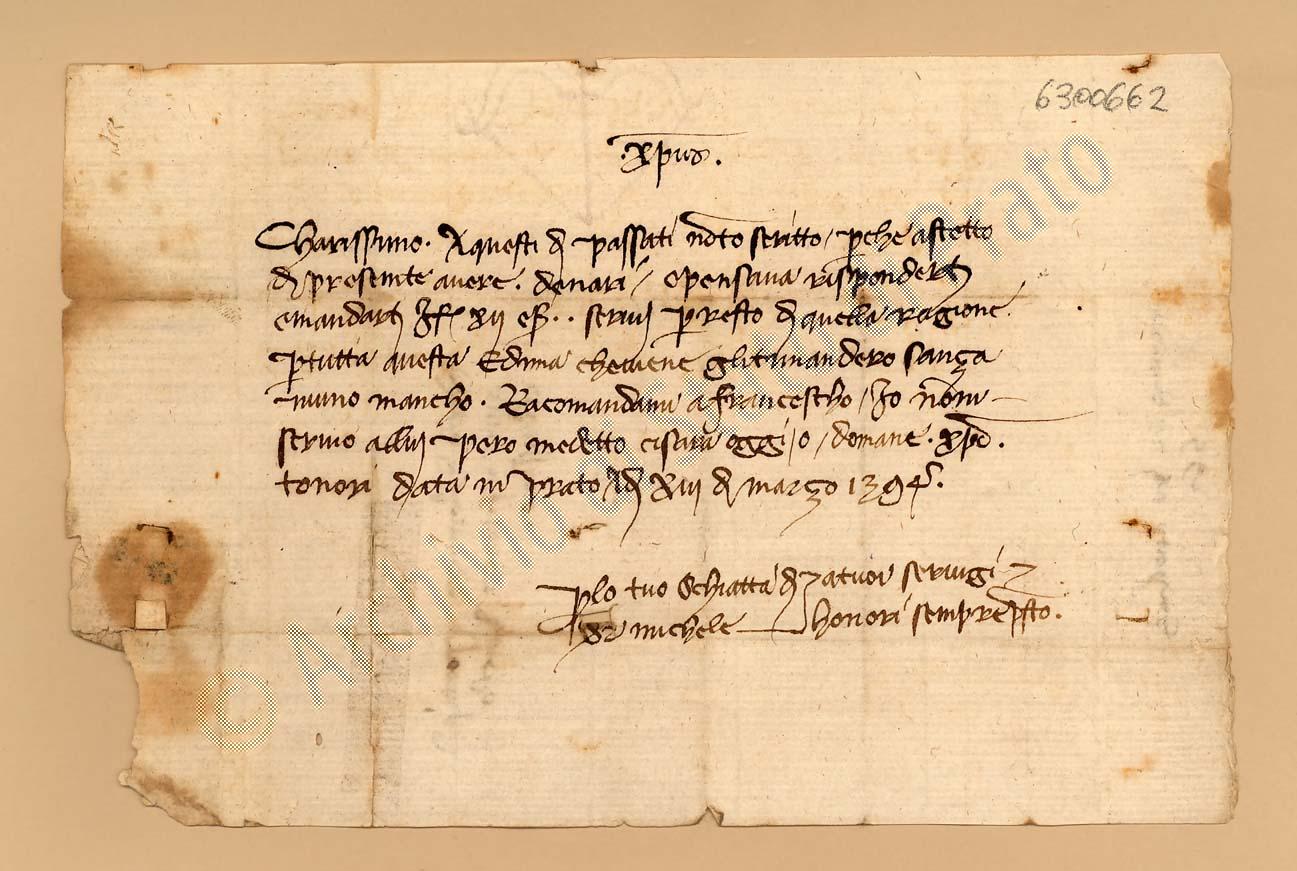 6300662
·xpus·
Charissimo. A questi dì passati non t'o scritto, perche aspetto
di presente avere. denari, e pensava risponderti
e mandarti XII per resto di quella ragione
per tutta questa edima che viene gli ti mandero sança
niuno mancho. Racomandami a Francescho, io non
scrivo a llui pero me detto ci sara oggi, o, domane. xpo.
t'onori data in Prato a dì XIII di março 1394.
per lo tuo Schiatta di a tuoi servigi
ser Michele honori sempre presto.
© Archivio di Stato di Prato